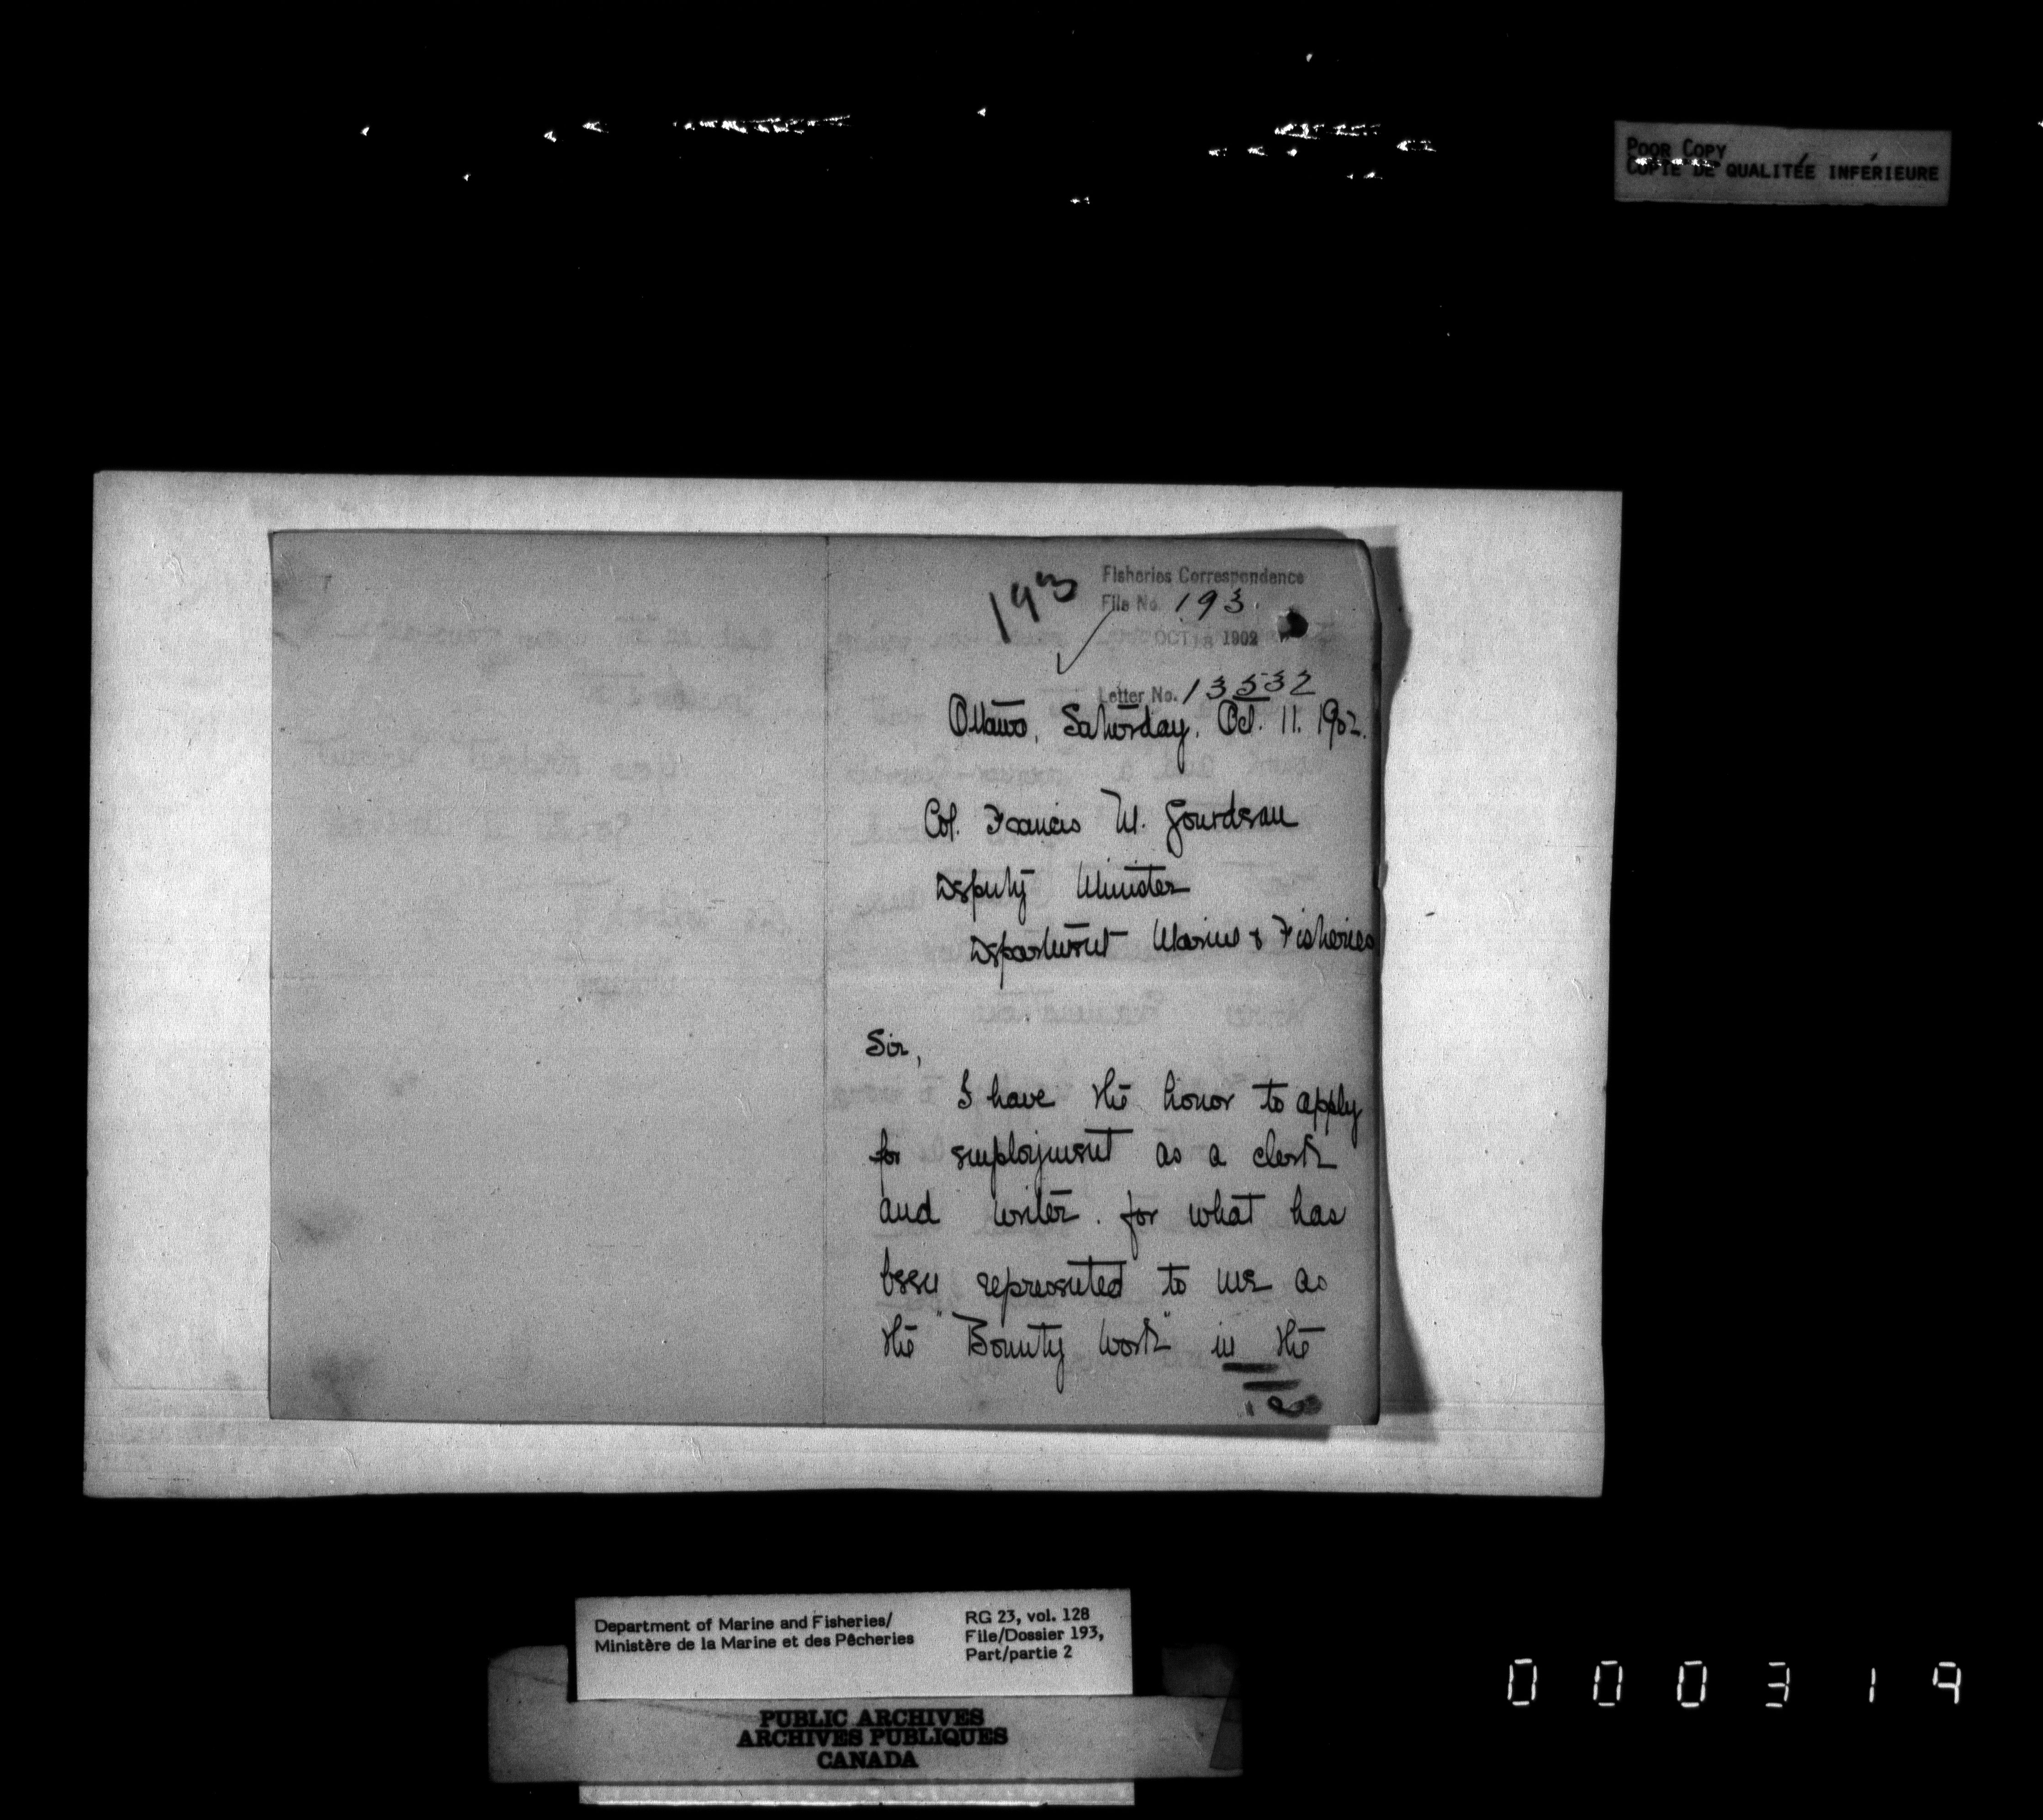 POOR COPY
COPIE DE QUALITÉE INFÉRIEURE
193
Fisheries Correspondence
File No. 193.
OCT 18 1902
Letter No. 13532
Ottawa, Saturday, Oct. 11. 1902.
Col. Francis W. Gourdeau
Deputy Minister
Department Marine & Fisheries
Sir,
I have the honor to apply
for employment as a clerk
and writer. for what has
been represented to me as
the "Bounty Work" in the
Department of Marine and Fisheries/
Ministère de la Marine et des Pêcheries
RG 23, vol. 128
File/Dossier 193,
Part/partie 2
PUBLIC ARCHIVES
ARCHIVES PUBLIQUES
CANADA
000319